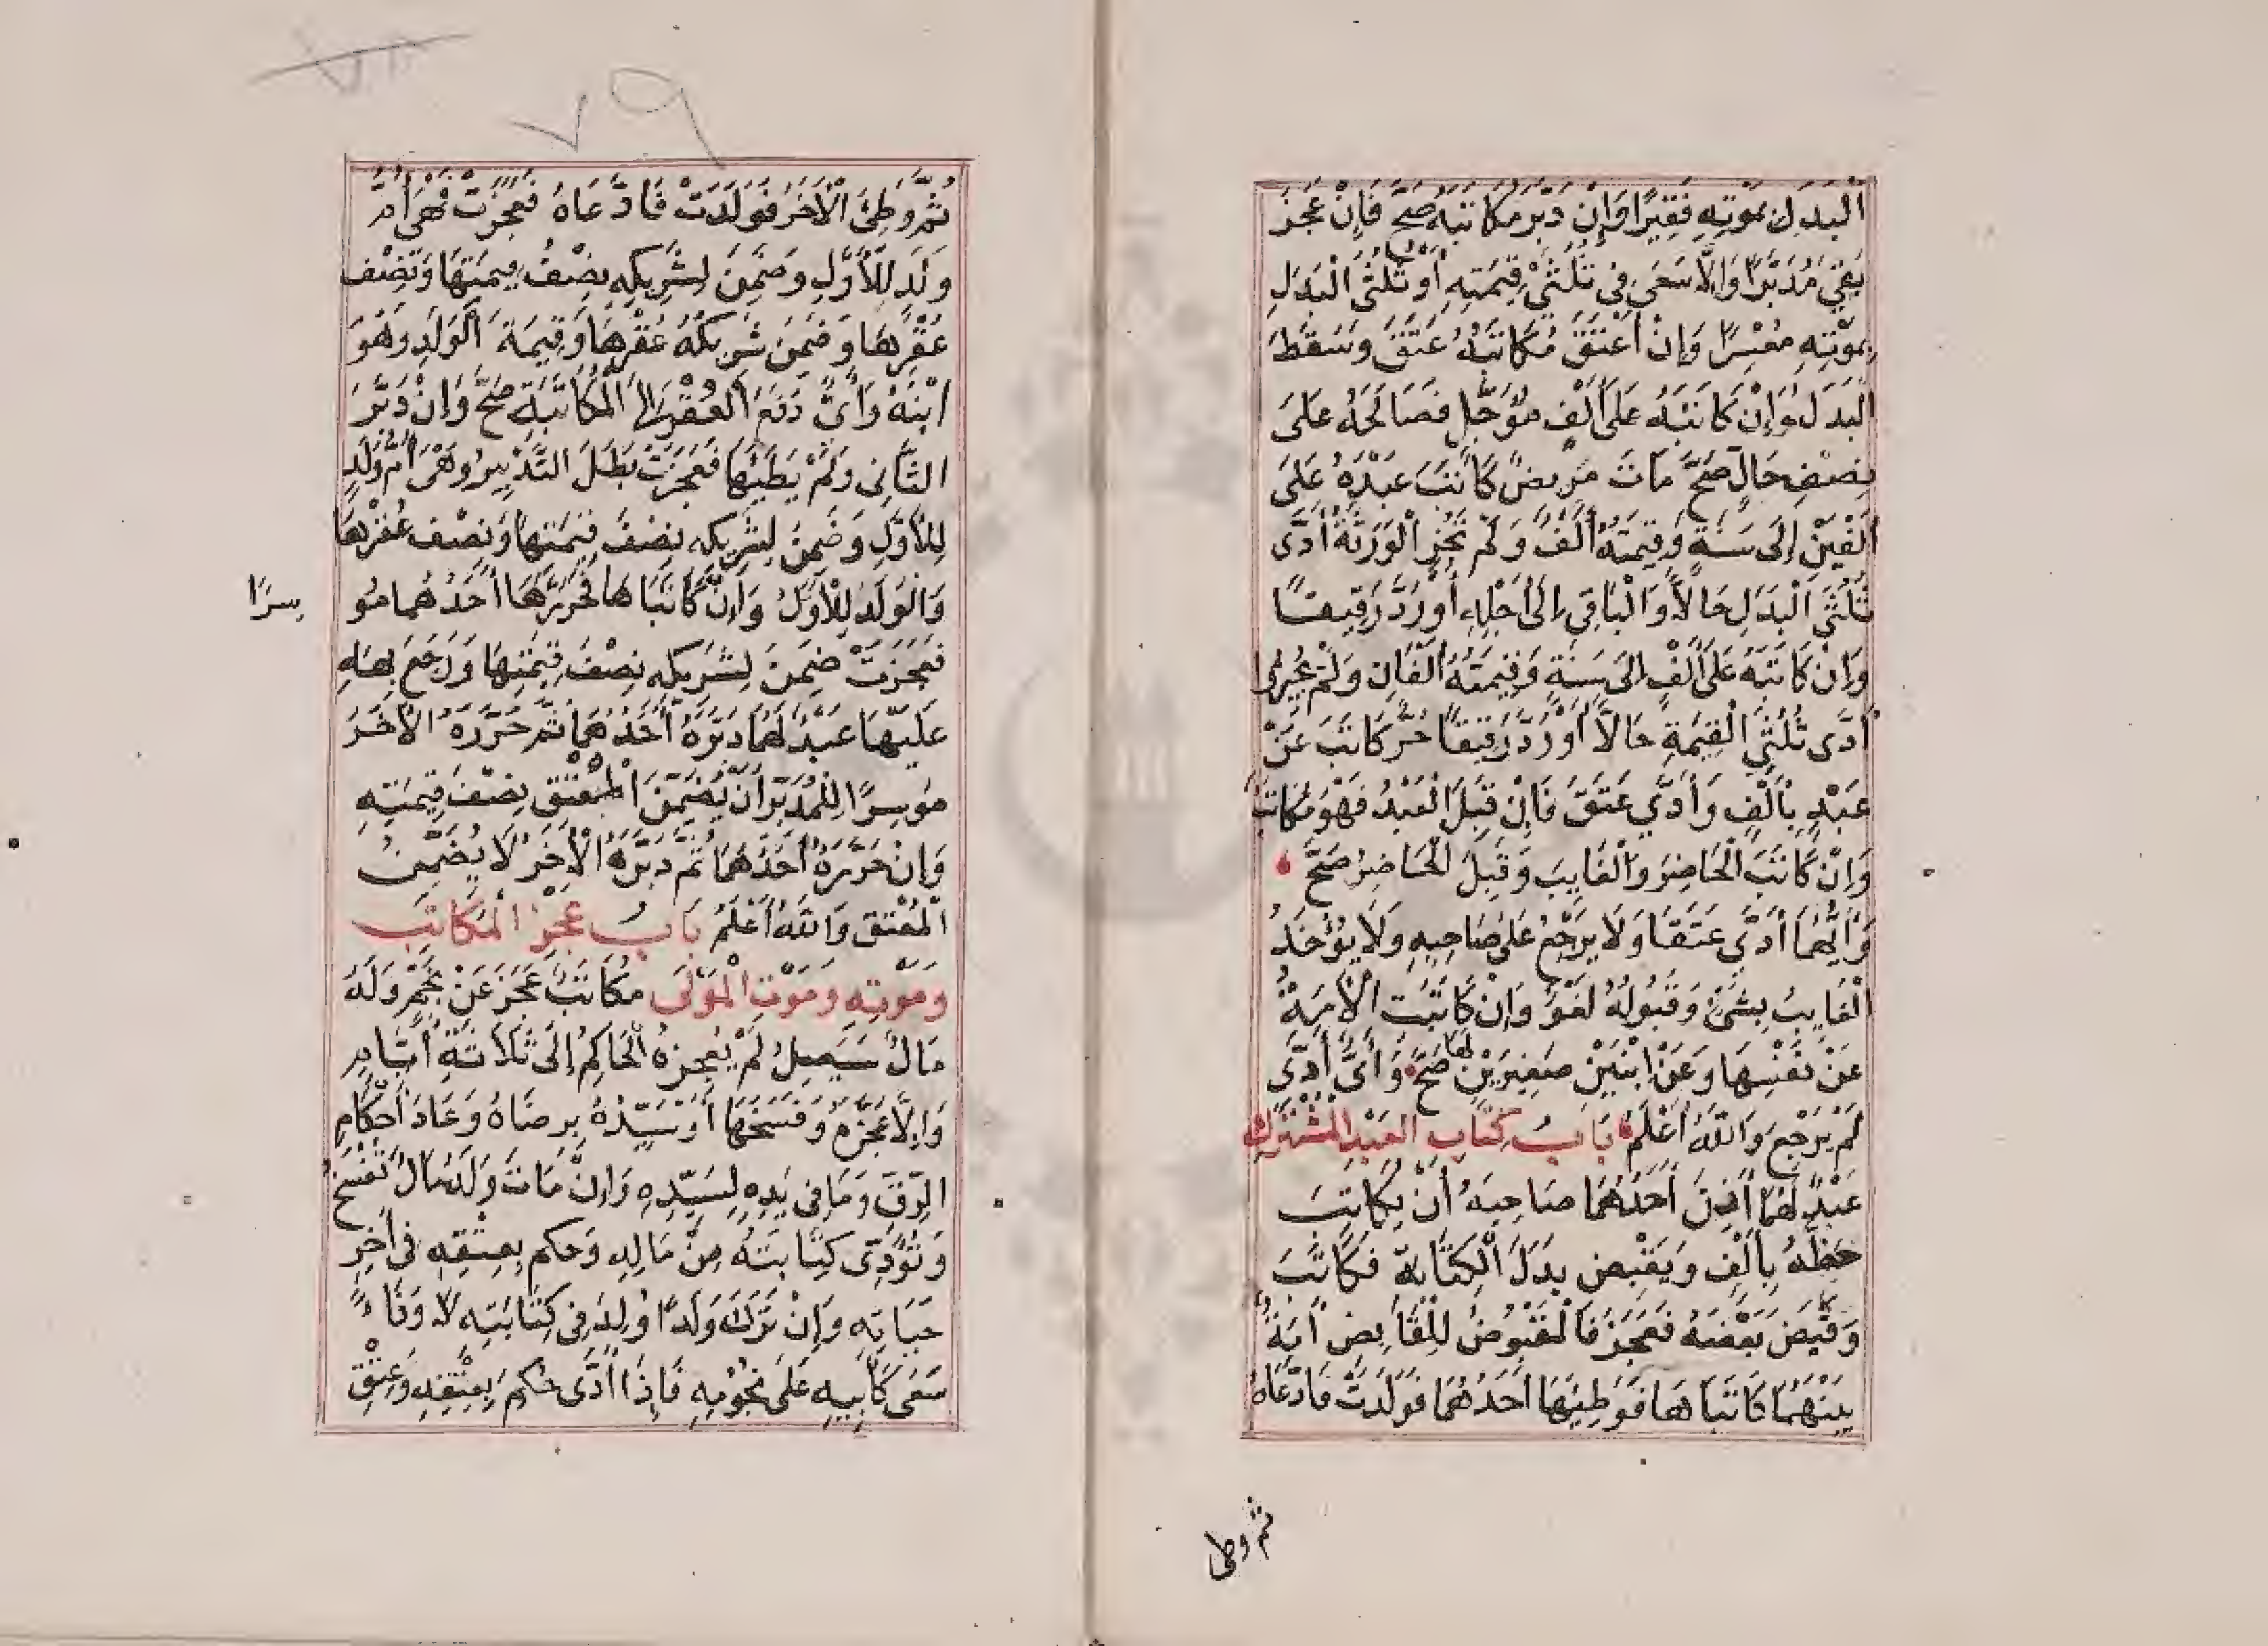 الْبَدَلِ بِمَوْتِهِ فَقِيرًا وَإِنْ دَبَّرَ مُكَاتَبَهُ صَحَّ فَإِنْ عَجَزَ
بَقِيَ مُدَبَّرًا وَإِلَّا سَعَى فِي ثُلُثَيْ قِيمَتِهِ أَوْ ثُلُثَيِ الْبَدَلِ
بِمَوْتِهِ مُعْسِرًا وَإِنْ أَعْتَقَ مُكَاتَبَهُ عَتَقَ وَسَقَطَ
الْبَدَلُ وَإِنْ كَاتَبَهُ عَلَى أَلْفٍ مُؤَجَّلٍ فَصَالَحَهُ عَلَى
نِصْفِ حَالٍّ صَحَّ مَاتَ مَرِيضٌ كَاتَبَ عَبْدَهُ عَلَى
أَلْفَيْنِ إِلَى سَنَةٍ وَقِيمَتُهُ أَلْفٌ وَلَمْ تُجِزِ الْوَرَثَةُ أَدَّى
ثُلُثَيِ الْبَدَلِ حَالًّا وَالْبَاقِي إِلَى أَجَلِهِ أَوْ رُدَّ رَقِيقًا
وَإِنْ كَاتَبَهُ عَلَى أَلْفٍ إِلَى سَنَةٍ وَقِيمَتُهُ أَلْفَانِ وَلَمْ يُجِيزُوا
أَدَّى ثُلُثَيِ الْقِيمَةِ حَالًّا أَوْ رُدَّ رَقِيقًا حُرٌّ كَاتَبَ عَنْ
عَبْدٍ بِأَلْفٍ وَأَدَّى عَتَقَ فَإِنْ قَبِلَ الْعَبْدُ فَهُوَ مُكَاتَبٌ
وَإِنْ كَاتَبَ الْحَاضِرَ وَالْغَايِبَ وَقَبِلَ الْحَاضِرُ صَحَّ
وَأَيُّهُمَا أَدَّى عَتَقَا وَلَا يَرْجِعُ عَلَى صَاحِبِهِ وَلَا يُؤْخَذُ
الْغَايِبُ بِشَيْءٍ وَقَبُولُهُ لَغْوٌ وَإِنْ كَاتَبَتِ الْأَمَةُ
عَنْ نَفْسِهَا وَعَنْ ابْنَيْنِ صَغِيرَيْنِ لَهَا صَحَّ وَأَيٌّ أَدَّى
لَمْ يَرْجِعْ وَاللَّهُ أَعْلَمُ بَابُ كِتَابِ الْعَبْدِ الْمُشْتَرَكِ
عَبْدٌ لَهُمَا أَذِنَ أَحَدُهُمَا صَاحِبَهُ أَنْ يُكَاتِبَ
حَظَّهُ بِأَلْفٍ وَيَقْبِضَ بَدَلَ الْكِتَابَةِ فَكَاتَبَ
وَقَبَضَ بَعْضَهُ فَعَجَزَ فَالْمَقْبُوضُ لِلْقَابِضِ أَمَةٌ
بَيْنَهُمَا كَاتَبَاهَا فَوَطِئَهَا أَحَدُهُمَا فَوَلَدَتْ فَادَّعَاهُ
ثم وطى
٧٩
ثُمَّ وَطِئَ الْآخَرُ فَوَلَدَتْ فَادَّعَاهُ فَعَجَزَتْ فَهِيَ أُمُّ
وَلَدٍ لِلْأَوَّلِ وَضَمِنَ لِشَرِيكِهِ نِصْفَ قِيمَتِهَا وَنِصْفَ
عُقْرِهَا وَضَمِنَ شَرِيكُهُ عُقْرَهَا وَقِيمَةَ الْوَلَدِ وَهُوَ
ابْنُهُ وَأَيٌّ دَفَعَ الْعُقْرَ إِلَى الْمُكَاتَبَةِ صَحَّ وَإِنْ دَبَّرَ
الثَّانِي وَلَمْ يَطَئْهَا فَعَجَزَتْ بَطَلَ التَّدْبِيرُ وَهِيَ أُمُّ وَلَدٍ
لِلْأَوَّلِ وَضَمِنَ لِشَرِيكِهِ نِصْفَ قِيمَتِهَا وَنِصْفَ عُقْرِهَا
وَالْوَلَدُ لِلْأَوَّلِ وَإِنْ كَاتَبَاهَا فَحَرَّرَهَا أَحَدُهُمَا مُو
سرًا
فَعَجَزَتْ ضَمِنَ لِشَرِيكِهِ نِصْفَ قِيمَتِهَا وَرَجَعَ بِهِ
عَلَيْهَا عَبْدٌ لَهُمَا دَبَّرَهُ أَحَدُهُمَا ثُمَّ حَرَّرَهُ الْآخَرُ
مُوسِرًا لِلْمُدَبِّرِ أَنْ يُضَمِّنَ الْمُعْتِقَ نِصْفَ قِيمَتِهِ
وَإِنْ حَرَّرَهُ أَحَدُهُمَا ثُمَّ دَبَّرَهُ الْآخَرُ لَا يُضَمِّنُ
الْمُعْتِقَ وَاللَّهُ أَعْلَمُ بَابُ عَجْزِ الْمُكَاتَبِ
وَمَوْتِهِ وَمَوْتِ الْمَوْلَى مُكَاتَبٌ عَجَزَ عَنْ نَجْمٍ وَلَهُ
مَالٌ سَيَصِلُ لَمْ يُعَجِّزْهُ الْحَاكِمُ إِلَى ثَلَاثَةِ أَيَّامٍ
وَإِلَّا عَجَّزَهُ وَفَسَخَهَا أَوْ سَيِّدُهُ بِرِضَاهُ وَعَادَ أَحْكَامِ
الرِّقِّ وَمَا فِي يَدِهِ لِسَيِّدِهِ وَإِنْ مَاتَ وَلَهُ مَالٌ تُفْسَخُ
وَتُؤَدَّى كِتَابَتُهُ مِنْ مَالِهِ وَحُكِمَ بِعِتْقِهِ فِي آخِرِ
حَيَاتِهِ وَإِنْ تَرَكَ وَلَدًا وُلِدَ فِي كِتَابَتِهِ لَا وَفَاءً
سَعَى كَأَبِيهِ عَلَى نُجُومِهِ فَإِذَا أَدَّى حُكِمَ بِعِتْقِهِ وَعِتْقِ